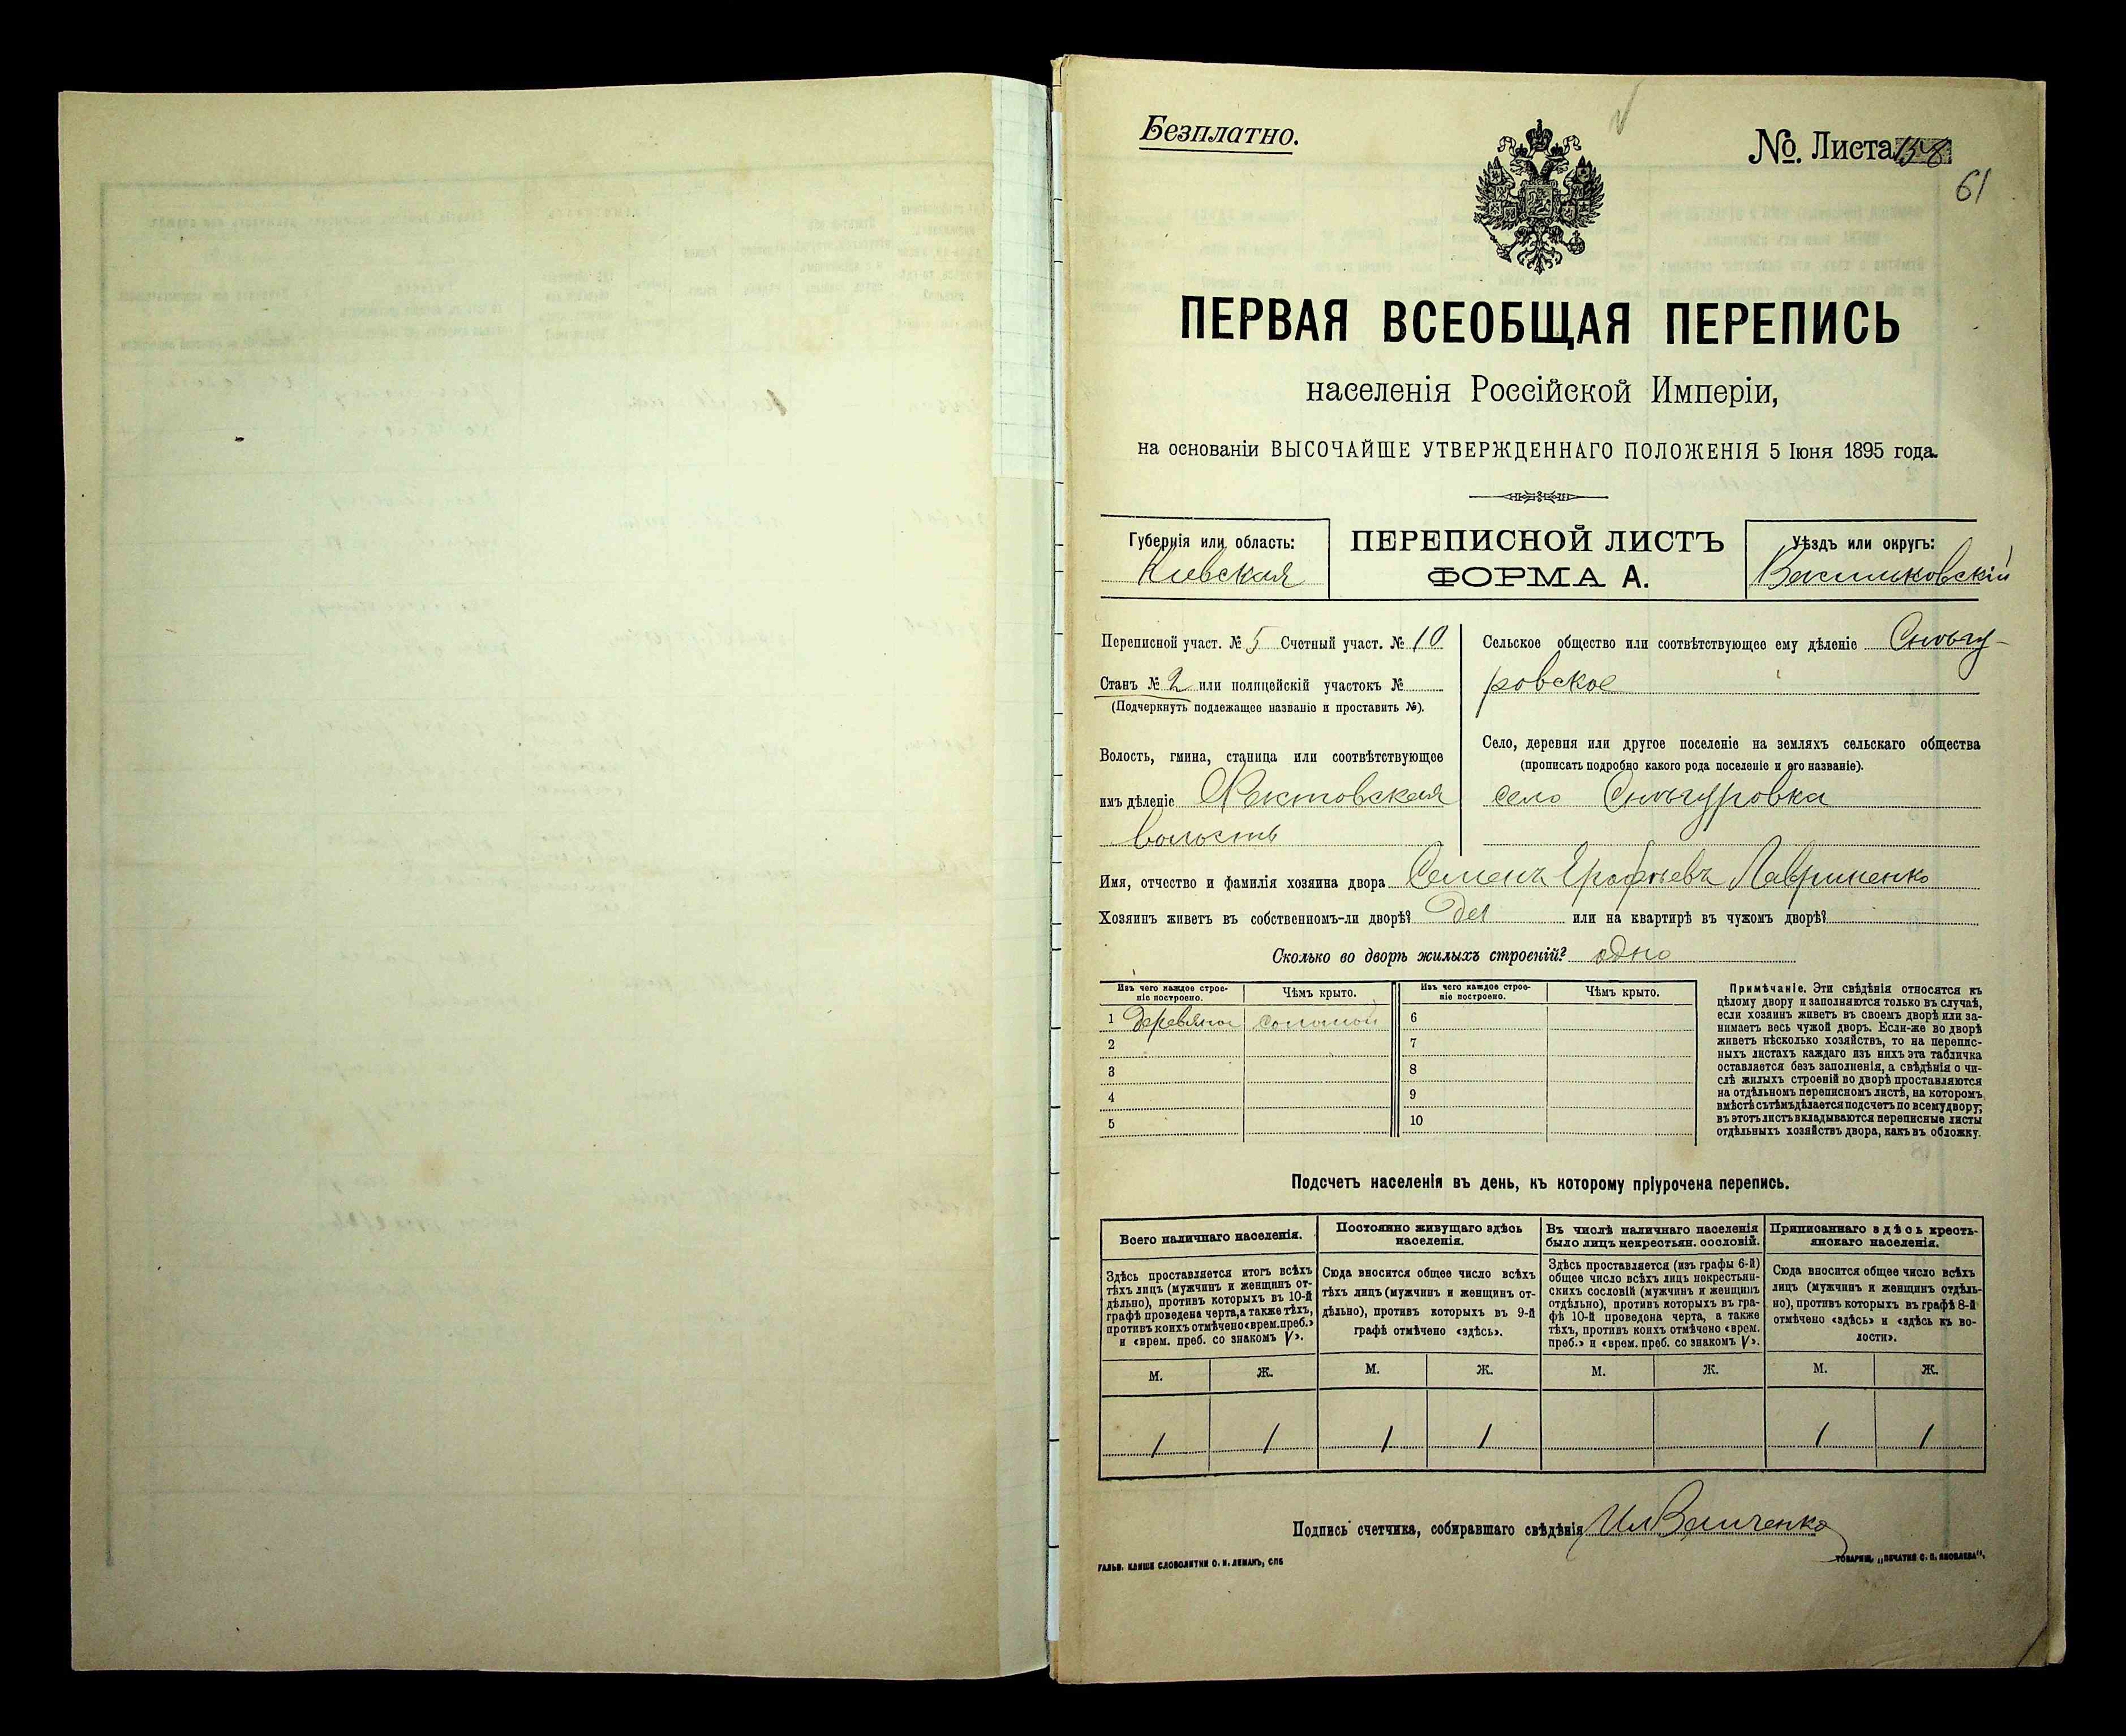 Безплатно.
№. Листа 158
61
ПЕРВАЯ ВСЕОБЩАЯ ПЕРЕПИСЬ
населенія Россійской Имперіи,
на основаніи ВЫСОЧАЙШЕ УТВЕРЖДЕННАГО ПОЛОЖЕНІЯ 5 Іюня 1895 года.
Губернія или область:
Кіевская
ПЕРЕПИСНОЙ ЛИСТЪ
ФОРМА А.
Уѣздъ или округъ:
Васильковскій
Переписной участ. № 5 Счетный участ. № 10
Станъ № 2 или полицейскій участокъ №
(Подчеркнуть подлежащее названіе и проставить №).
Волость, гмина, станица или соотвѣтствующее
имъ дѣленіе
волость
Сельское общество или соотвѣтствующее ему дѣленіе Снѣгу-
ровское
Село, деревня или другое поселеніе на земляхъ сельскаго общества
(прописать подробно какого рода поселеніе и его названіе).
село Снѣгуровка
Имя, отчество и фамилія хозяина двора Семенъ Ерофѣевъ Лавриненко
Хозяинъ живетъ въ собственномъ-ли дворѣ? да или на квартирѣ въ чужомъ дворѣ?
Сколько во дворѣ жилыхъ строеній? одно
Изъ чего каждое строе-
ніе построено.
Чѣмъ крыто.
Изъ чего каждое строе-
ніе построено.
Чѣмъ крыто.
1 деревяное соломой 6
2 7
3 8
4 9
5 10
Примѣчаніе. Эти свѣдѣнія относятся къ
цѣлому двору и заполняются только въ случаѣ,
если хозяинъ живетъ въ своемъ дворѣ или за-
нимаетъ весь чужой дворъ. Если-же во дворѣ
живетъ нѣсколько хозяйствъ, то на перепис-
ныхъ листахъ каждаго изъ нихъ эта табличка
оставляется безъ заполненія, а свѣдѣнія о чи-
слѣ жилыхъ строеній во дворѣ проставляются
на отдѣльномъ переписномъ листѣ, на которомъ
вмѣстѣ съ тѣмъ дѣлается подсчетъ по всему двору;
въ этотъ листъ вкладываются переписные листы
отдѣльныхъ хозяйствъ двора, какъ въ обложку.
Подсчетъ населенія въ день, къ которому пріурочена перепись.
Всего наличнаго населенія.
Здѣсь проставляется итогъ всѣхъ
тѣхъ лицъ (мужчинъ и женщинъ от-
дѣльно), противъ которыхъ въ 10-й
графѣ проведена черта, а также тѣхъ,
противъ коихъ отмѣчено «врем. преб.»
и «врем. преб. со знакомъ V».
Постоянно живущаго здѣсь
населенія.
Сюда вносится общее число всѣхъ
тѣхъ лицъ (мужчинъ и женщинъ от-
дѣльно), противъ которыхъ въ 9-й
графѣ отмѣчено «здѣсь».
Въ числѣ наличнаго населенія
было лицъ некрестьян. сословій.
Здѣсь проставляется (изъ графы 6-й)
общее число всѣхъ лицъ некрестьян-
скихъ сословій (мужчинъ и женщинъ
отдѣльно), противъ которыхъ въ гра-
фѣ 10-й проведена черта, а также
тѣхъ, противъ коихъ отмѣчено «врем.
преб.» и «врем. преб. со знакомъ V».
Приписаннаго здѣсь кресть-
янскаго населенія.
Сюда вносится общее число всѣхъ
лицъ (мужчинъ и женщинъ отдѣль-
но), противъ которыхъ въ графѣ 8-й
отмѣчено «здѣсь» и «здѣсь къ во-
лости».
М. Ж. М. Ж. М. Ж. М. Ж.
1 1 1 1 1 1
Подпись счетчика, собиравшаго свѣдѣнія
ГАЛЬВ. КЛИШЕ СЛОВОЛИТНИ О. И. ЛЕМАНЪ, СПБ
ТОВАРИЩ. „ПЕЧАТНЯ С. П. ЯКОВЛЕВА".